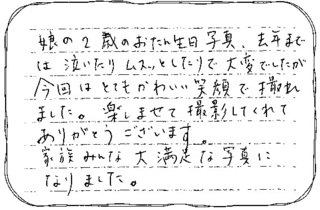 娘の2歳のおたん生日写真、去年まで
は泣いたりムスッとしたりで大変でしたが
今回はとてもかわいい笑顔で撮れ
ました。楽しませて撮影してくれて
ありがとうございます。
家族みんな大満足な写真に
なりました。